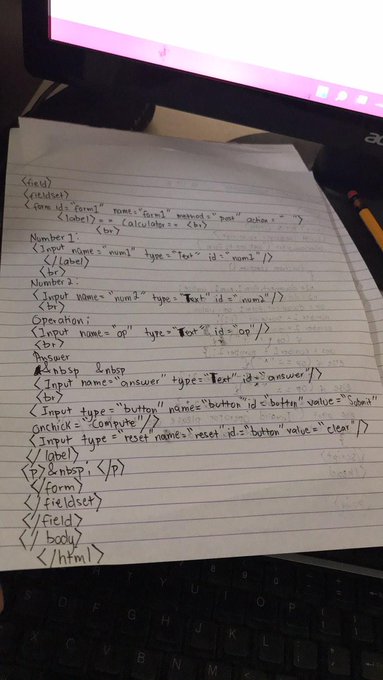 <field>
<fieldset>
<form id="form1" name="form1" method="post" action=" ">
<label> == Calculator == <br>
<br>
Number 1:
<Input name="num1" type="Text" id="num1"/>
</label>
<br>
Number 2:
<Input name="num2" type="Text" id="num2"/>
<br>
Operation:
<Input name="op" type="Text" id="op"/>
<br>
Answer
&nbsp &nbsp
<Input name="answer" type="Text" id="answer"/>
<br>
<Input type="button" name="button" id="button" value="Submit"
onchick="Compute"/>
<Input type="reset" name="reset" id="button" value="clear"/>
</label>
<p>&nbsp; </p>
</form>
</fieldset>
</field>
</body>
</html>